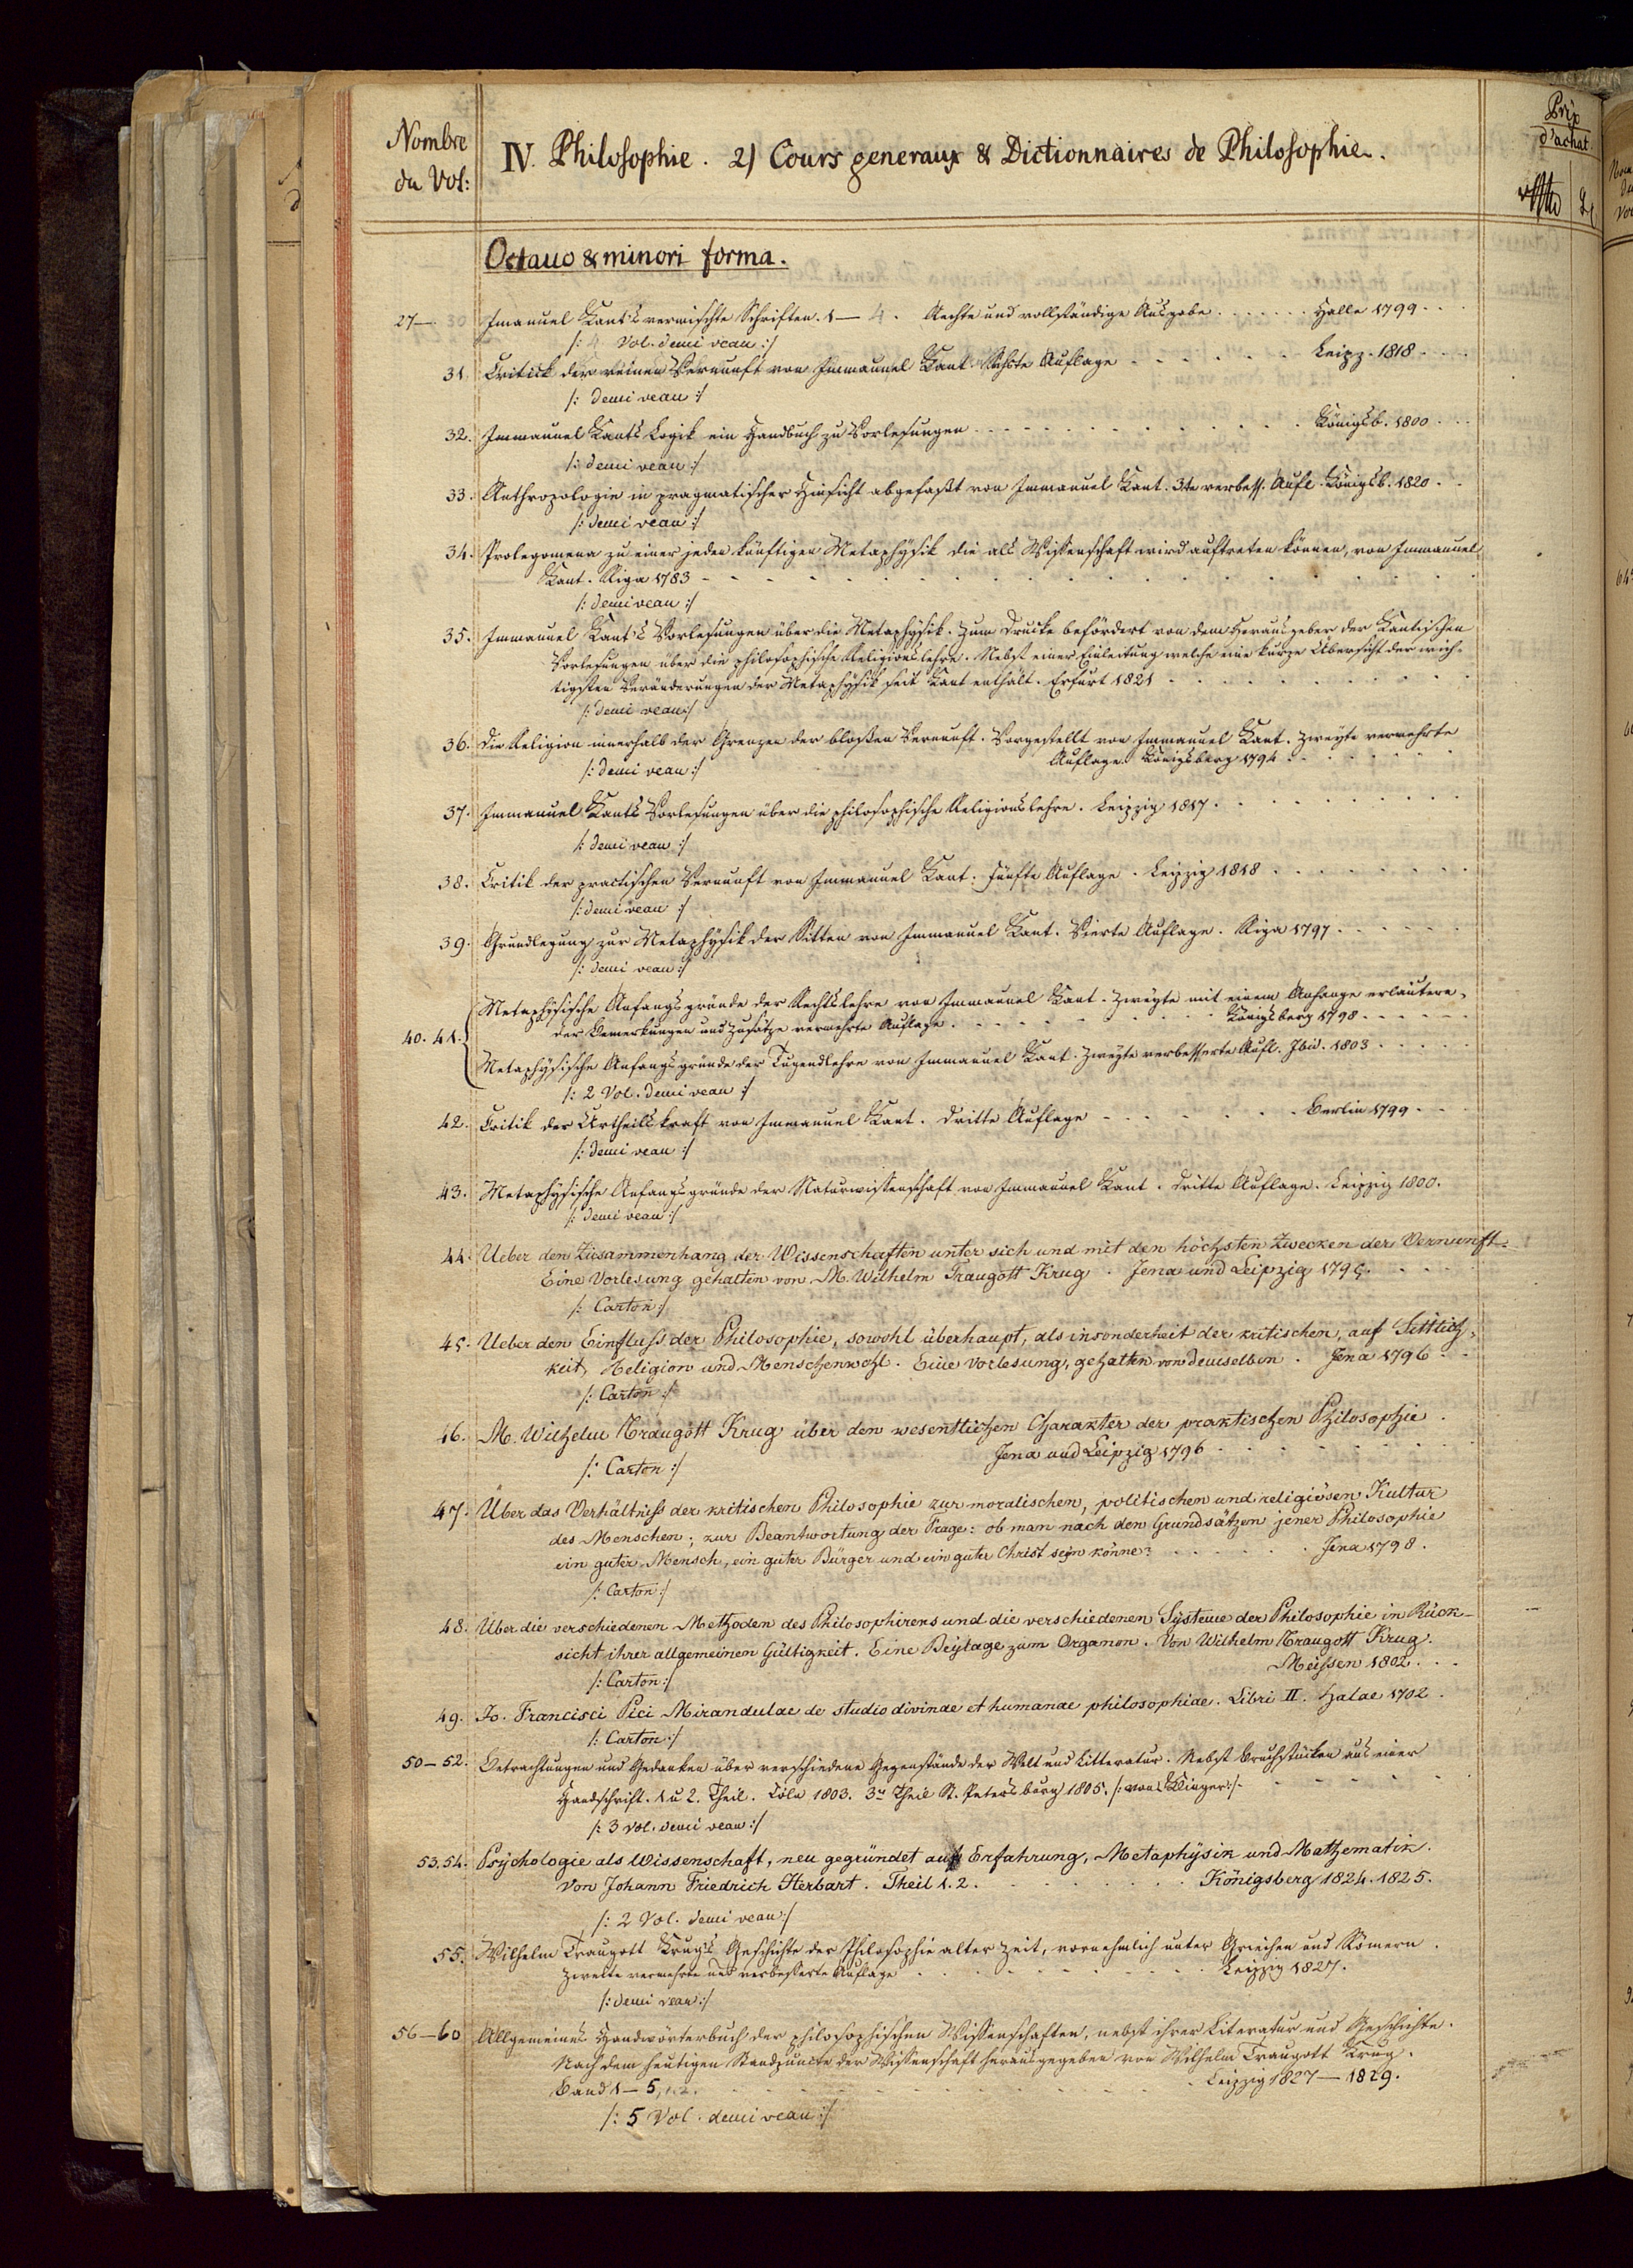 Nombre
du Vol:
IV. Philosophie. 2) Cours generaux & Dictionnaires de Philosophie.
Prix
d'achat
Octauo & minori forma.
27— Imanuel Kant's vermischte Schriften. 1—4. Aechte und vollständige Ausgabe . . . . . . Halle 1799 . . .
/: 4 Vol. demi veau :/
31. Critick der reinen Vernunft von Immanuel Kant. Sechste Auflage - - - - - - Leipz. 1818 . . .
/: demi veau :/
32. Immanuel Kants Logik ein Handbuch zu Vorlesungen - - - - - - - - Königsb. 1800 . . .
/: demi veau :/
33. Anthropologie in pragmatischer Hinsicht abgefaßt von Immanuel Kant. 3te verbess. Aufl. Königsb. 1820 . .
/: demi veau :/
34. Prolegomena zu einer jeden künftigen Metaphÿsik die als Wissenschaft wird auftreten können, von Immanuel
Kant. Riga 1783 - - - - - - - -
/: demi veau :/
35. Immanuel Kant's Vorlesungen über die Metaphÿsik. Zum Drucke befördert von dem Herausgeber der Kantischen
Vorlesungen über die philosophische Religionslehre. Nebst einer Einleitung welche eine kurze Übersicht der wich-
tigsten Veränderungen der Metaphÿsik seit Kant enthält. Erfurt 1821 - - - - -
/: demi veau :/
36. Die Religion innerhalb der Grenzen der bloßen Vernunft. Vorgestellt von Immanuel Kant. Zweÿte vermehrte
Auflage. Königsberg 1794 . . . . .
/: demi veau :/
37. Immanuel Kants Vorlesungen über die philosophische Religionslehre. Leipzig 1817. . . . . . .
/: demi veau :/
38. Critik der practischen Vernunft von Immanuel Kant. Fünfte Auflage. Leipzig 1818 . . . . . .
/: demi veau :/
39. Grundlegung zur Metaphÿsik der Sitten von Immanuel Kant. Vierte Auflage. Riga 1797. . . . . .
/: demi veau :/
Metaphÿsische Anfangsgründe der Rechtslehre von Immanuel Kant. Zweÿte mit einem Anhange erläutern-
40. 41. der Bemerkungen und Zusätze vermehrte Auflage. - - - - - Königsberg 1798 - - - - -
Metaphÿsische Anfangsgründe der Tugendlehre von Immanuel Kant. Zweÿte verbesserte Aufl. Ibid. 1803 . . . . .
/: 2 Vol. demi veau :/
42. Critik der Urtheilskraft von Immanuel Kant. Dritte Auflage - - - - - - Berlin 1799 . . .
/: demi veau :/
43. Metaphÿsische Anfangsgründe der Naturwissenschaft von Immanuel Kant. Dritte Auflage. Leipzig 1800.
/: demi veau :/
44. Ueber den Zusammenhang der Wissenschaften unter sich und mit den höchsten Zwecken der Vernunft.
Eine Vorlesung gehalten von M. Wilhelm Traugott Krug. Jena und Leipzig 1795. . . . .
/: Carton :/
45. Ueber den Einfluss der Philosophie, sowohl überhaupt, als insonderheit der kritischen, auf Sittlich-
keit, Religion und Menschenwohl. Eine Vorlesung, gehalten von demselben. Jena 1796 . .
/: Carton :/
46. M. Wilhelm Traugott Krug über den wesentlichen Charakter der praktischen Philosophie.
Jena und Leipzig 1796 - - - - -
/: Carton :/
47. Über das Verhältniss der kritischen Philosophie zur moralischen, politischen und religiösen Kultur
des Menschen; zur Beantwortung der Frage: ob man nach den Grundsätzen jener Philosophie
ein guter Mensch, ein guter Bürger und ein guter Christ seÿn könne? . . . . . Jena 1798.
/: Carton :/
48. Über die verschiedenen Methoden des Philosophirens und die verschiedenen Sÿsteme der Philosophie in Rück-
sicht ihrer allgemeinen Gültigkeit. Eine Beÿlage zum Organon. Von Wilhelm Traugott Krug.
Meissen 1802. . .
/: Carton :/
49. Jo. Francisci Pici Mirandulae de studio divinae et humanae philosophiae. Libri II. Halae 1702.
/: Carton :/
50—52. Betrachtungen und Gedanken über verschiedene Gegenstände der Welt und Litteratur. Nebst Bruchstücken aus einer
Handschrift. 1 u 2. Theil. Cöln 1803. 3r Theil St. Petersburg 1805. /: von Klinger :/. - - - -
/: 3 Vol. demi veau :/
53. 54. Psÿchologie als Wissenschaft, neu gegründet auf Erfahrung, Metaphÿsik und Mathematik.
Von Johann Friedrich Herbart. Theil 1. 2. - - - - Königsberg 1824. 1825.
/: 2 Vol. demi veau :/
55. Wilhelm Traugott Krug's Geschichte der Philosophie alter Zeit, vornehmlich unter Griechen und Römern.
Zweite vermehrte und verbesserte Auflage . . . . . . . Leipzig 1827.
/: demi veau :/
56—60 Allgemeines Handwörterbuch der philosophischen Wissenschaften, nebst ihrer Literatur und Geschichte.
Nach dem heutigen Standpuncte der Wissenschaft herausgegeben von Wilhelm Traugott Krug.
Band 1—5, - - - - - - - - Leipzig 1827—1829.
/: 5 Vol. demi veau :/